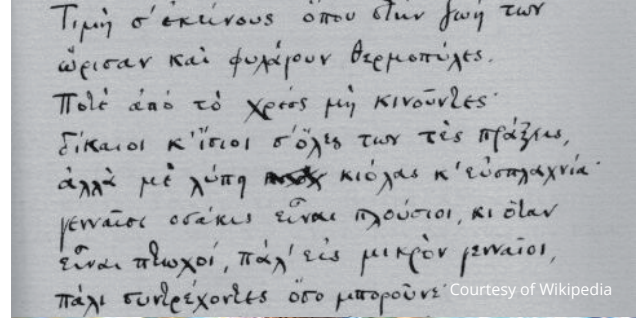 Τιμὴ σ' ἐκείνους ὅπου στὴν ζωή των
ὥρισαν καὶ φυλάγουν Θερμοπύλες.
Ποτὲ ἀπὸ τὸ χρέος μὴ κινοῦντες·
δίκαιοι κ' ἴσιοι σ' ὅλες των τὲς πράξεις,
ἀλλὰ μὲ λύπη κιόλας κ' εὐσπλαχνία·
γενναῖοι οσάκις εἶναι πλούσιοι, κι ὅταν
εἶναι πτωχοί, πάλ' εἰς μικρὸν γενναῖοι,
πάλι συντρέχοντες ὅσο μποροῦνε·
Courtesy of Wikipedia